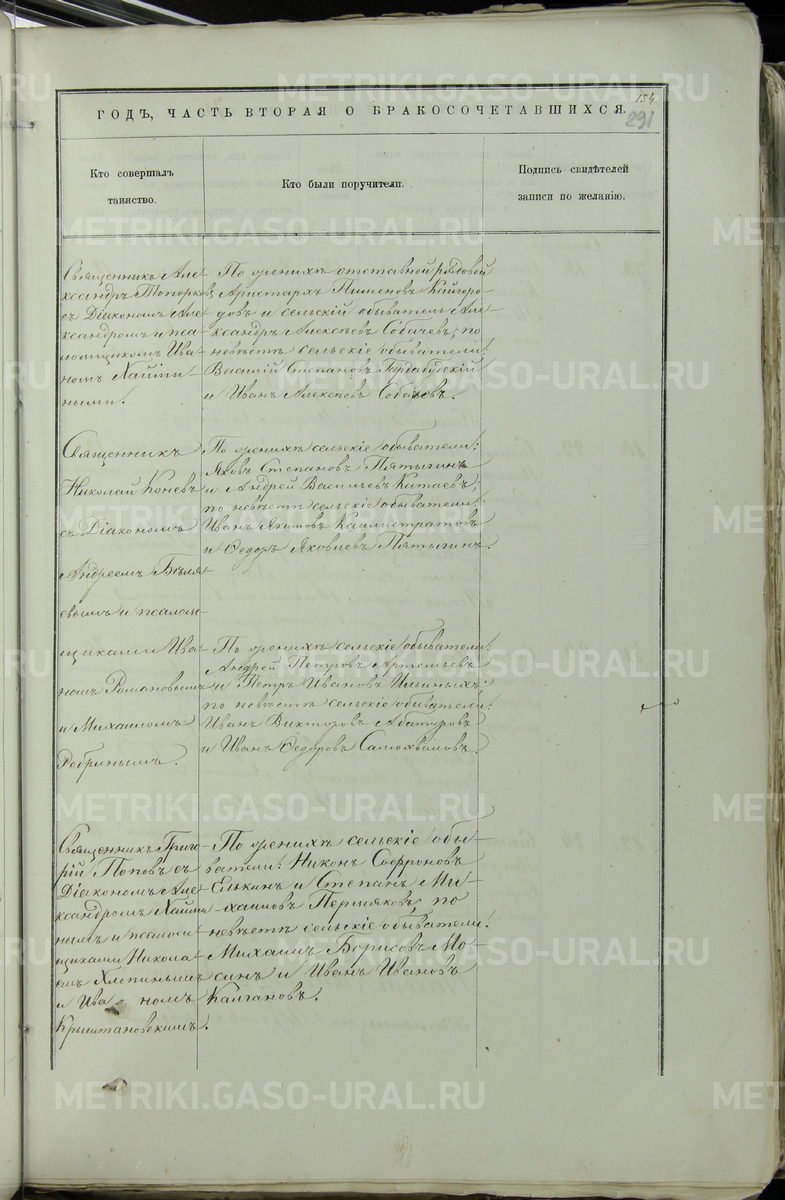 154
291
ГОДЪ, ЧАСТЬ ВТОРАЯ О БРАКОСОЧЕТАВШИХСЯ.
Кто совершалъ
таинство.
Кто были поручители.
Подпись свидѣтелей
записи по желанію.
Священникъ Але-
ксандръ Топорковъ
съ Діакономъ Але-
ксандромъ и пса-
ломщикомъ Ива-
номъ
ными.
По женихѣ отставной рядовой
Аристархъ Пименовъ Кайгоро-
довъ и сельскій обыватель Але-
ксандръ Алексѣевъ Собачевъ; по
невѣстѣ сельскіе обыватели:
Василій Степановъ
и Иванъ Алексѣевъ
Священникъ
Николай Коневъ
съ Діакономъ
Андреемъ Бѣля-
евымъ и псалом-
щиками Ива-
номъ Романовымъ
и Михаиломъ
Ребринымъ.
По женихѣ сельскіе обыватели:
Яковъ Степановъ Пятыгинъ
и Андрей Васильевъ Катаевъ;
по невѣстѣ сельскіе обыватели:
Иванъ Якимовъ Каллистратовъ
и Ѳедоръ Яковлевъ Пятыгинъ.
По женихѣ сельскіе обыватели:
Андрей Петровъ Артемьевъ
и Петръ Ивановъ Ильиныхъ;
по невѣстѣ сельскіе обыватели:
Иванъ Викторовъ Абатуровъ
и Иванъ Ѳедоровъ Самохваловъ.
Священникъ Григо-
рій Поповъ съ
Діакономъ Але-
ксандромъ
нымъ и псалом-
щиками Никола-
емъ Хлопинымъ
и Иваномъ
По женихѣ сельскіе обы-
ватели: Никонъ Софроновъ
Елькинъ и Степанъ Ми-
хаиловъ Пермяковъ; по
невѣстѣ сельскіе обыватели:
Михаилъ Борисовъ Мо-
синъ и Иванъ Ивановъ
Калгановъ.
METRIKI.GASO-URAL.RU